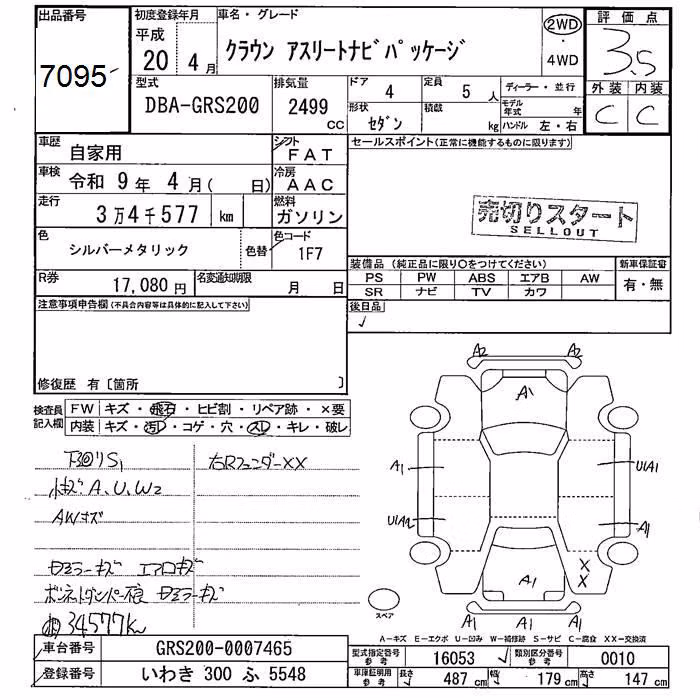 出品番号
7095
初度登録年月
平成
20 年 4 月
車名・グレード
クラウン アスリートナビパッケージ
2WD
・
4WD
評価点
3.5
外装 内装
C C
型式
DBA-GRS200
排気量
2499
CC
ドア
4
定員
5 人
形状
セダン
積載
kg
ディーラー・並行
モデル年式 年
ハンドル 左・右
車歴
自家用
シフト
FAT
車検
令和 9年 4月( 日)
冷房
AAC
走行
3万4千577 km
燃料
ガソリン
色
シルバーメタリック
色替
色コード
1F7
R券
17,080円
名変通知期限
月 日
セールスポイント(正常に機能するものに限ります)
売切りスタート
SELLOUT
装備品(純正品に限り○をつけてください)
PS PW ABS エアB AW
SR ナビ TV カワ
新車保証書
有・無
後日品
注意事項申告欄(不具合内容等は具体的に記入して下さい)
修復歴 有〔箇所 〕
検査員記入欄
FW キズ・飛石・ヒビ割・リペア跡・×要
内装 キズ・汚レ・コゲ・穴・スレ・キレ・破レ
下回りS1
右RフェンダーXX
小キズ.A、U、W2
AWキズ
Bミラーキズ エアロキズ
ボンネットダンパー不良
34577km
A2 A2
A1
A1 U1A1
U1A2 A1
X
X
A1
A1
スペア
A-キズ E-エクボ U-凹み W-補修跡 S-サビ C-腐食 XX-交換済
車台番号
GRS200-0007465
登録番号
いわき 300 ふ 5548
型式指定番号
参考
16053
類別区分番号
参考
0010
車庫証明用
参考
長さ 487 cm
幅 179 cm
高さ 147 cm